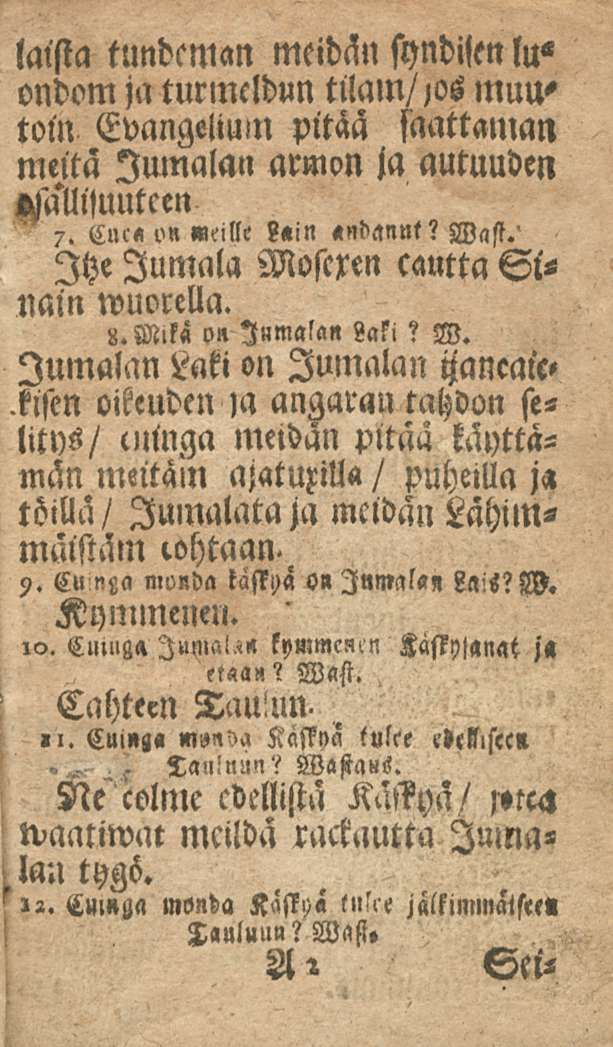 laista tundeman meidän syndisen lu⸗
ondom ja turmeldun tilam/ jos muu⸗
toin Evangelium pitää saattaman
meitä Jumalan armon ja autuuden
osällisuuteen
7. Cuca on meille Lain andanut? Wast.
Itze Jumala Mosexen cautta Si⸗
nain wuorella.
8. Mikä on Jumalan Laki? W.
Jumalan Laki on Jumalan ijancaic⸗
kisen oikeuden ja angaran tahdon se⸗
litys/ cuinga meidän pitää käyttä⸗
män meitäm ajatuxilla/ puheilla ja
töillä/ Jumalata ja meidän Lähim⸗
mäistäm cohtaan.
9. Cuinga monda käskyä on Jumalan Lais? W.
Kymmenen.
10. Cuinga Jumalan kymmenen Käskysanat ja
etaan? Wast.
Cahteen Tauluun.
11. Cuinga monda Käskyä tulee edelliseen
Tauluun? Wastaus.
Ne colme edellistä Käskyä/ jotca
waatiwat meildä rackautta Juma⸗
lan tygö.
12. Cuinga monda Käskyä tulee jälkimmäiseen
Tauluun? Wast.
A 2 Sei⸗